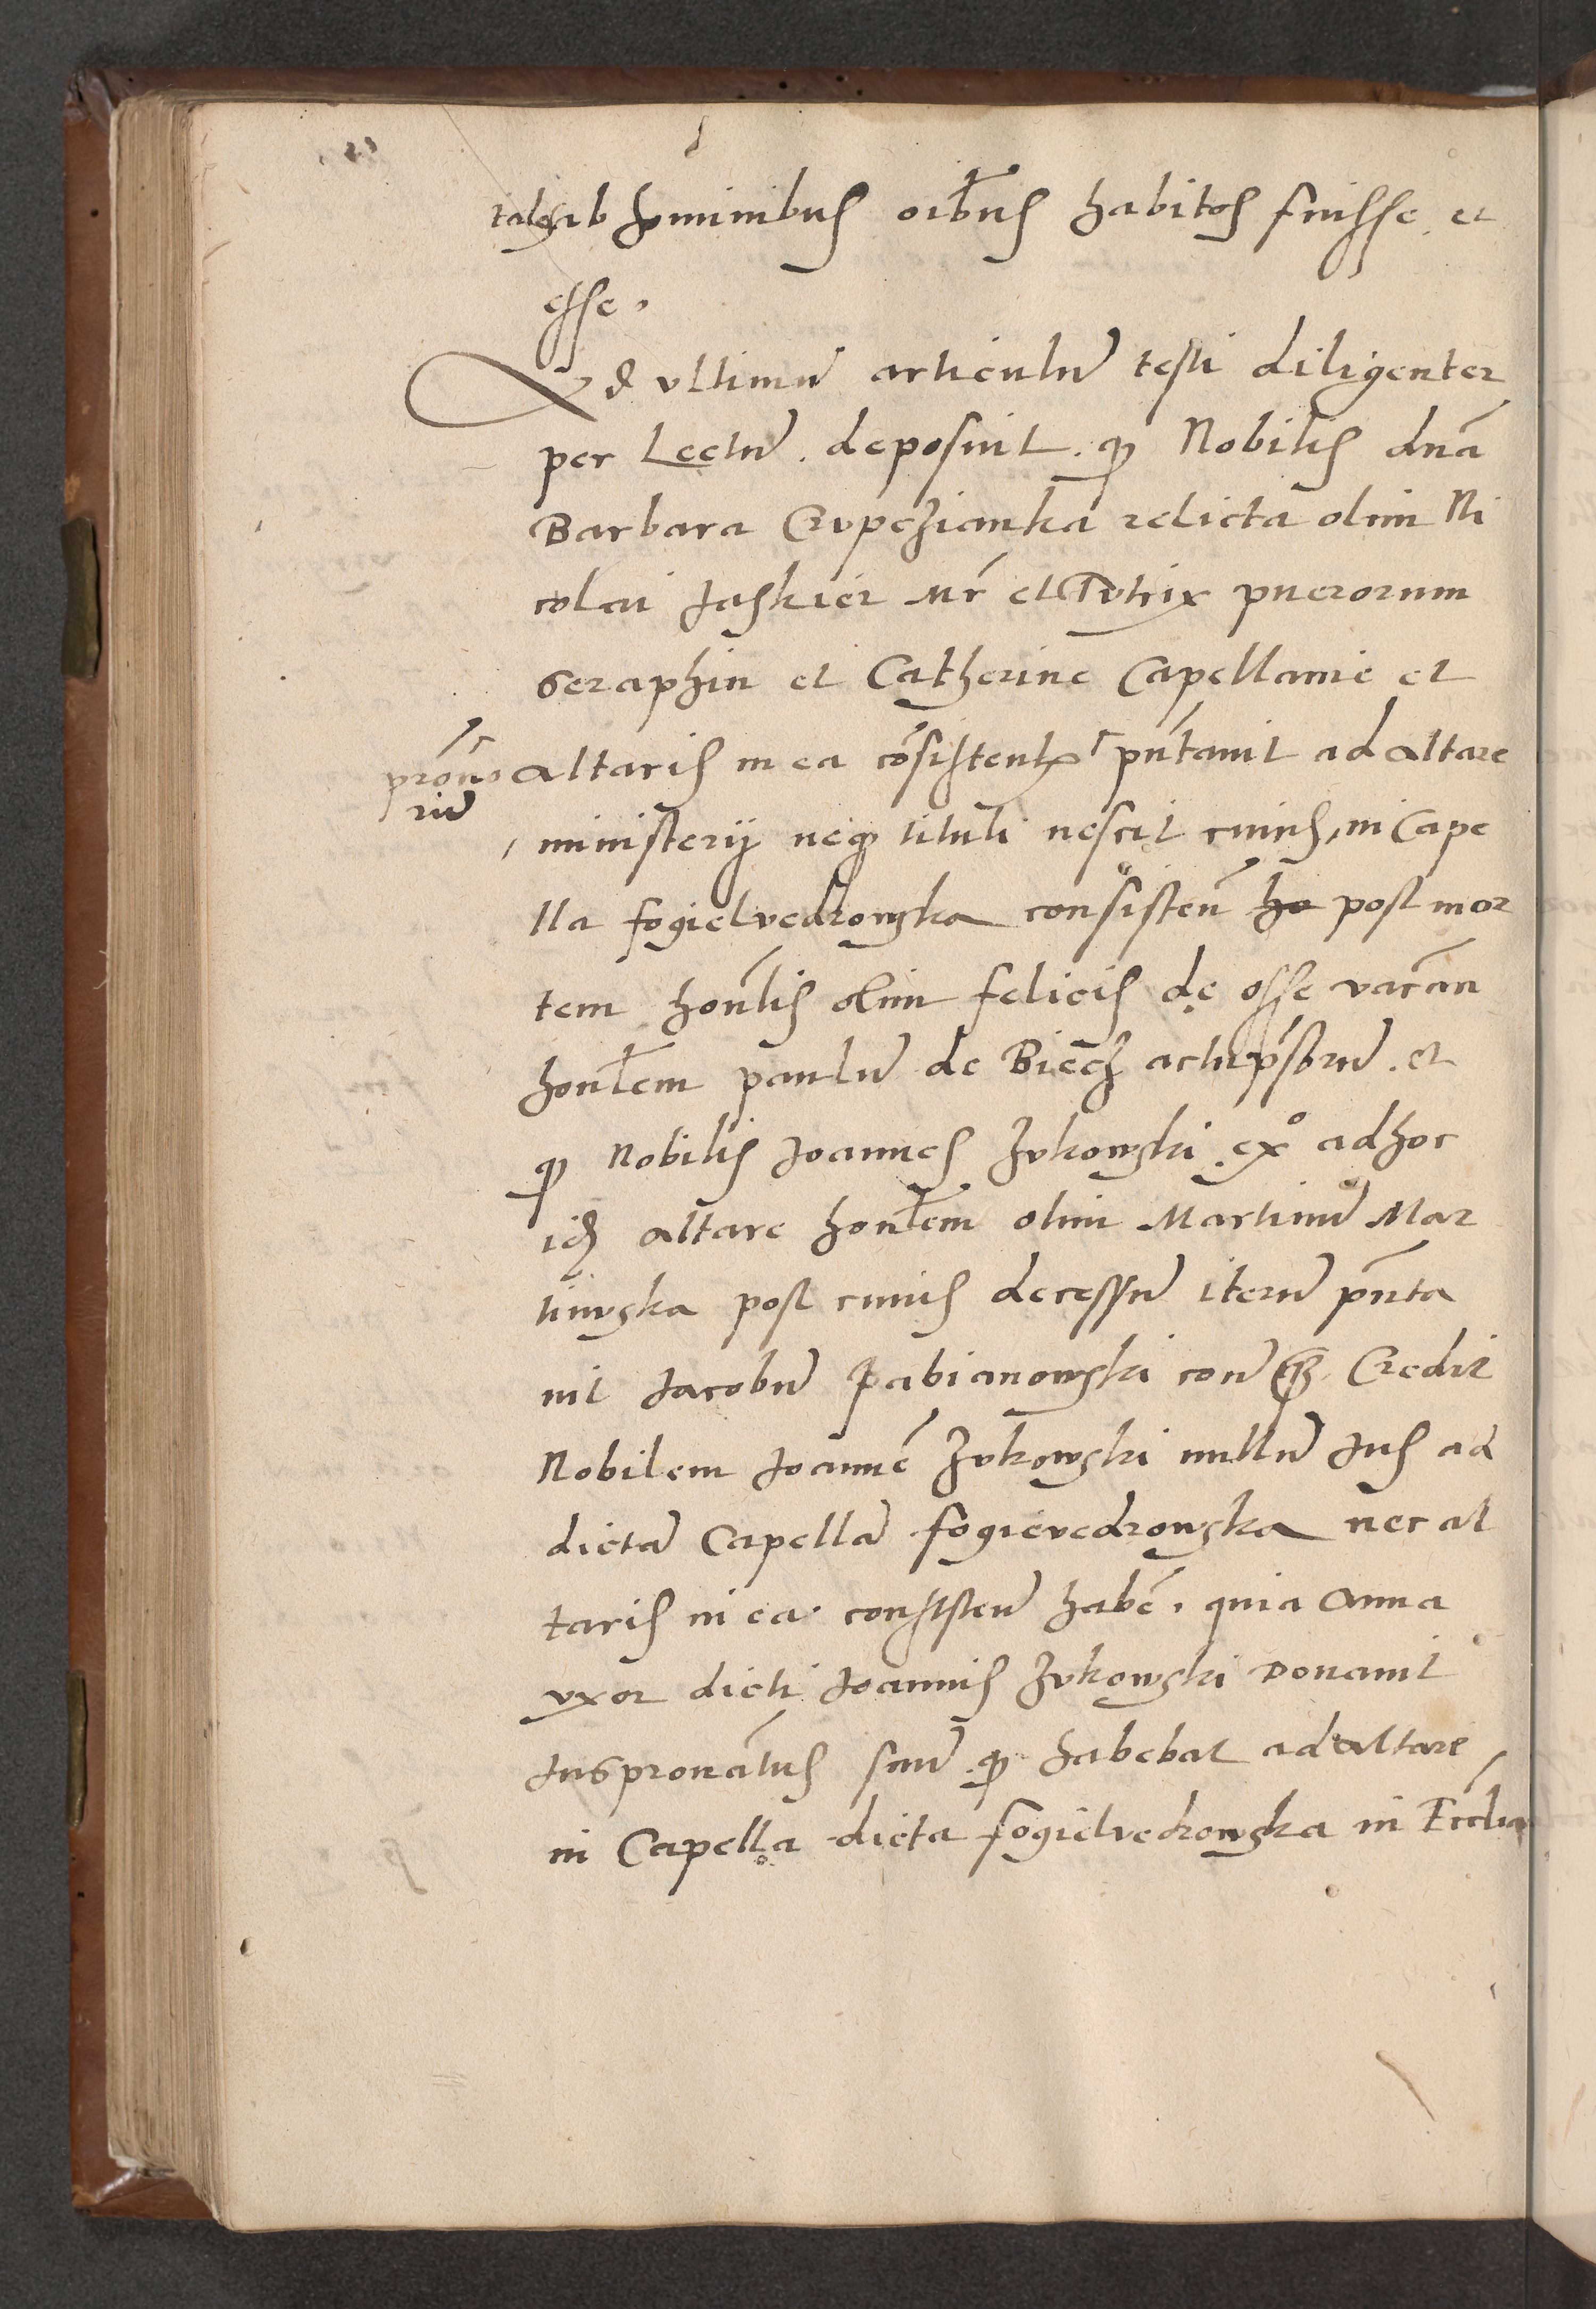 talib hominibus oibus habitos fuisse et
esse.
Ad vltimum articulum testi diligenter
per Lectum. deposuit. qd Nobilis dna
Barbara Crupczianka relicta olim Ni
colai Jaskier Mr et Tutrix puerorum
Seraphin et Catherine Capellanie et
altaris in ea cosisten pntauit ad altare
pronorum
ministerij neq tituli nescit cuius, in Cape
lla fogielvedrowska consisten post mor
tem honlis olim felicis de osse vacan
honlem paulum de Biecz actu psbrum. et
qd Nobilis Joannes Zukowski exo ad hoc
id altare honlem olim Martinum Mar
tinuska post cuius decessum iterum pnta
uit Jacobum Pabianowski conum Credit
Nobilem Joanne Zukowski nullum Jus ad
dictam Capellam fogievedrowska nec al
taris in ea consisten habe, quia Anna
vxor dicti Joannis Zukowski Donauit
Juspronatus suum qd habebat ad altare
in Capella dicta fogielvedrowska in Ecclia